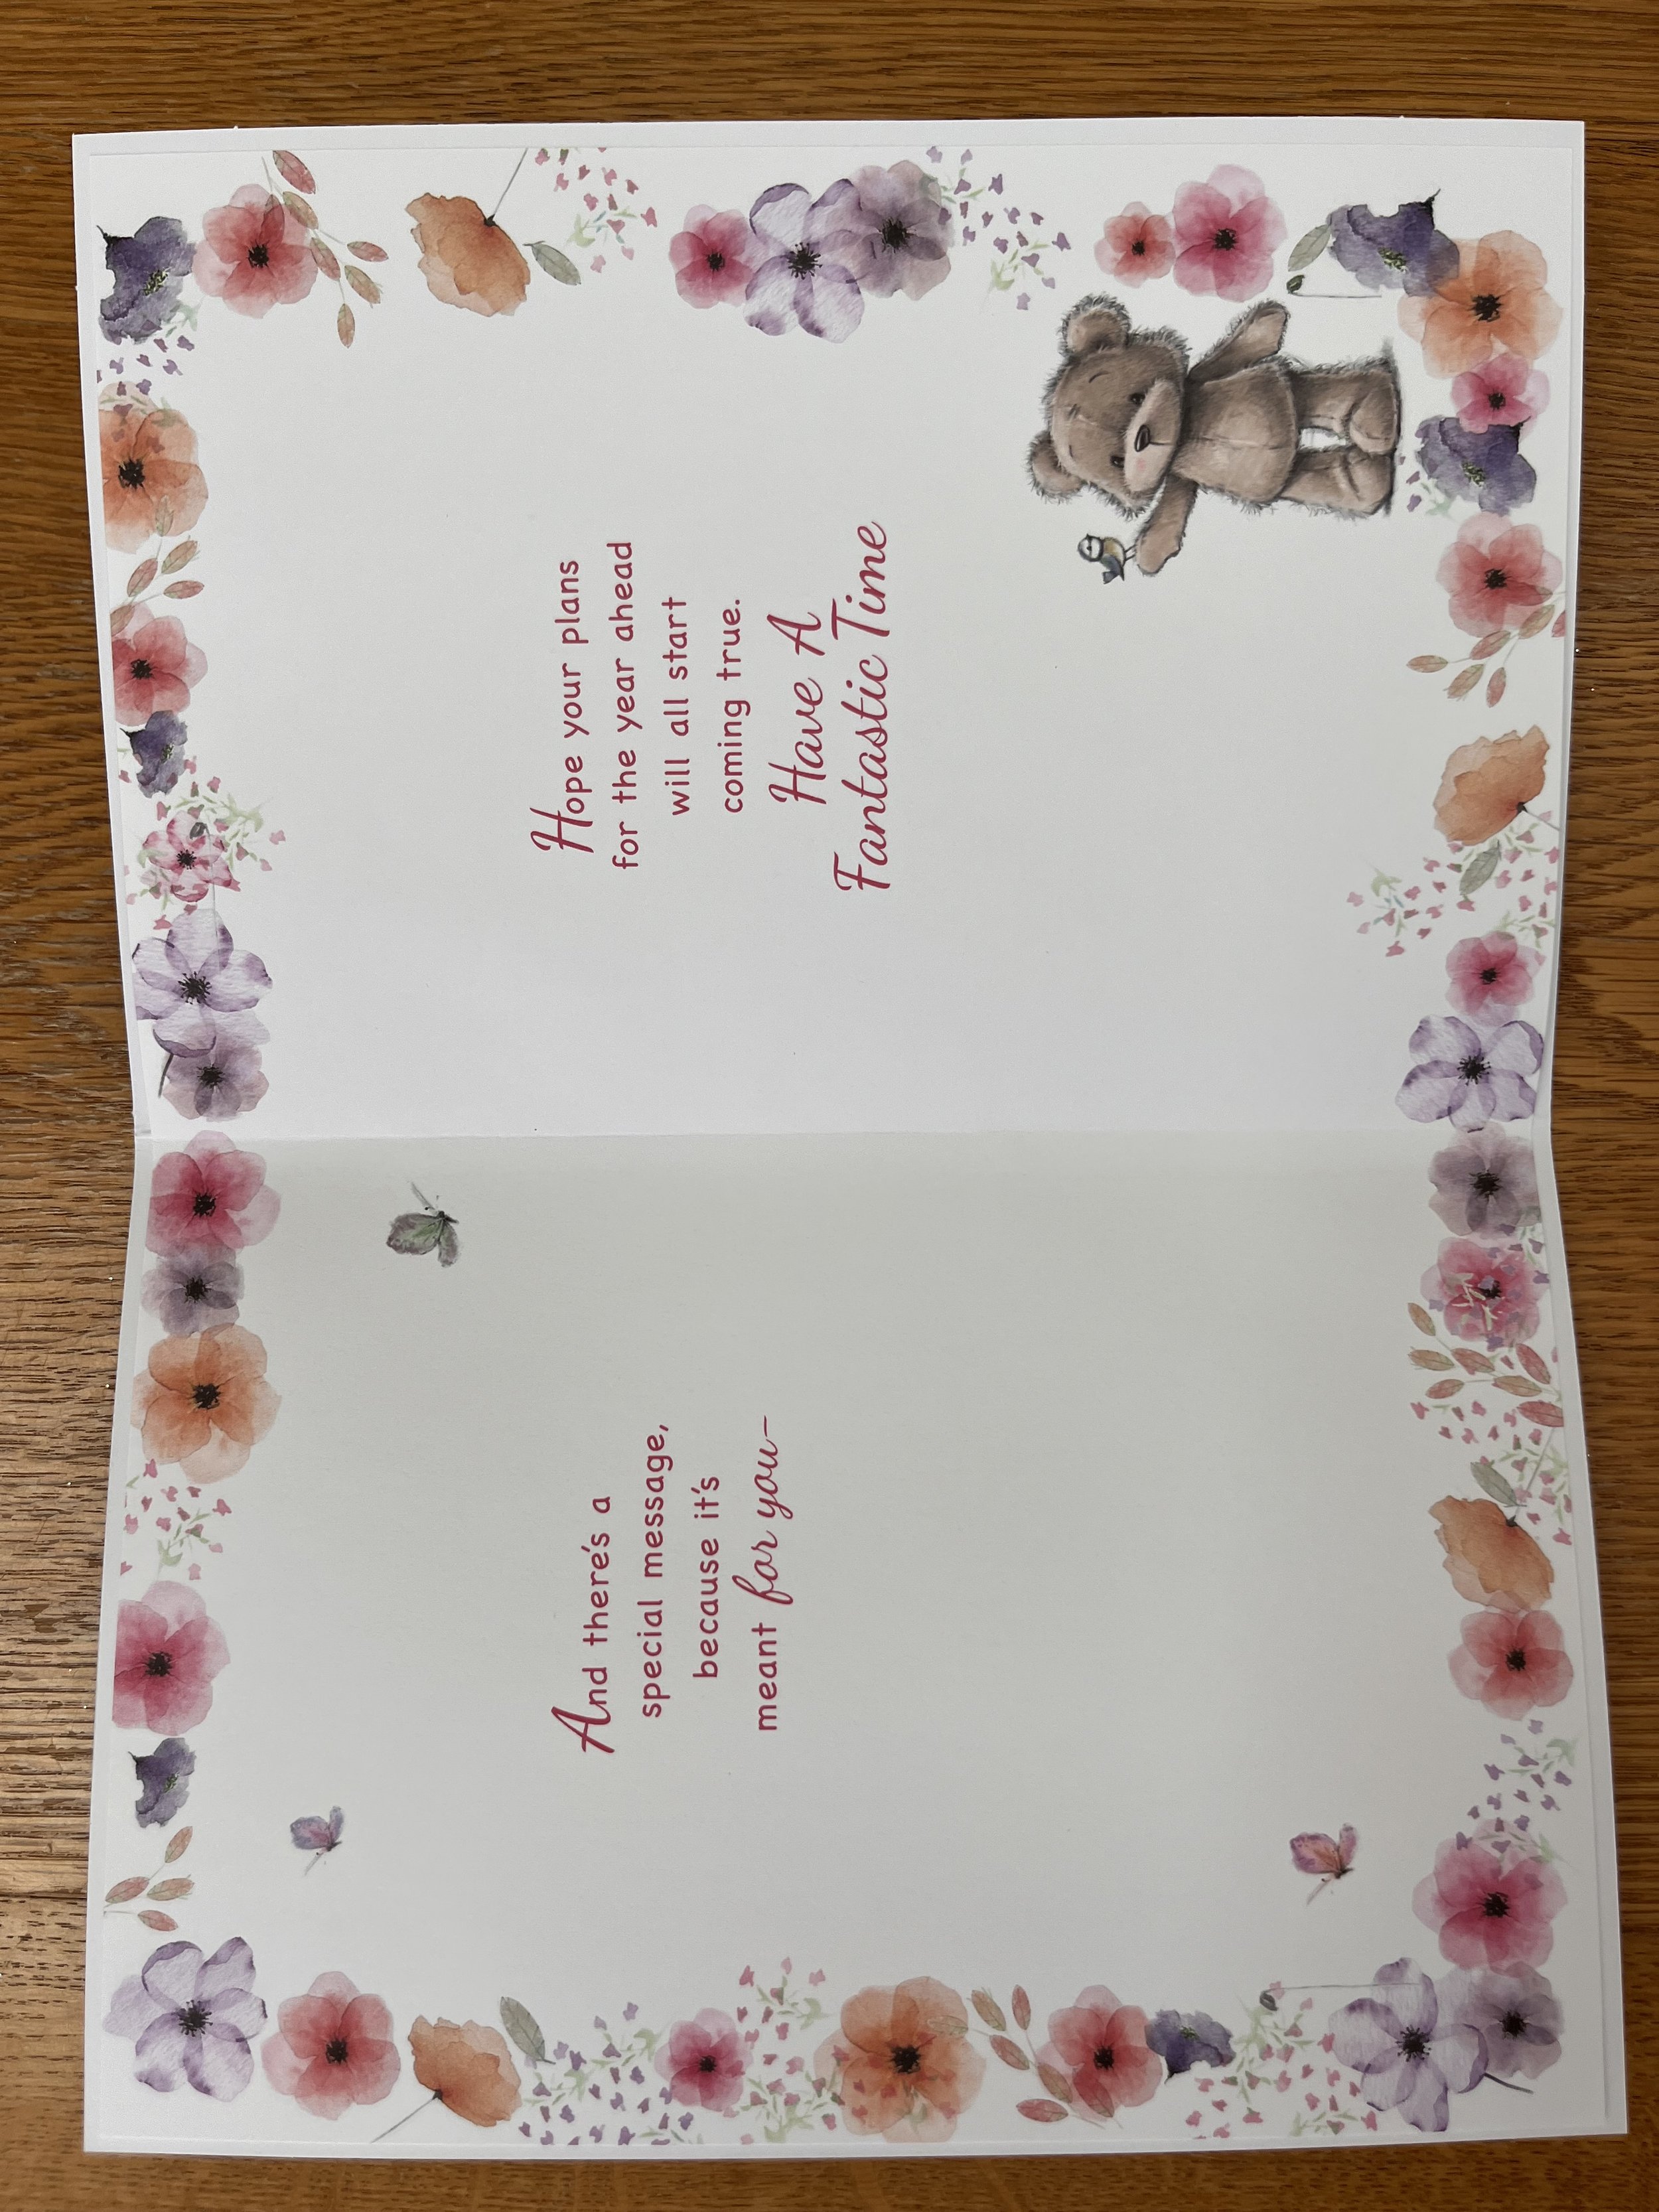 And there's a
special message,
because it's
meant for you–
Hope your plans
for the year ahead
will all start
coming true.
Have A
Fantastic Time